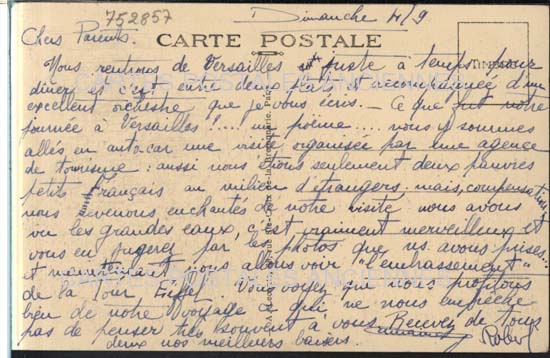 752857
Dimanche 4/9
Chers Parents.
CARTE POSTALE
Nous rentrons de Versailles juste à temps pour
diner et c'est entre deux plats et accompagnée d'un
excellent orchestre que je vous écris. — Ce que fut notre
journée à Versailles! ..... un poëme ..... nous y sommes
allés en auto-car une visite organisée par une agence
de tourisme: aussi nous étions seulement deux pauvres
petits français au milieu d'étrangers. mais, compensation
nous revenons enchantés de notre visite nous avons
vu les grandes eaux, c'est vraiment merveilleux et
vous en jugerez par les photos que ns. avons prises...
et maintenant nous allons voir "l'embrassement"
de la Tour Eiffel. Vous voyez que nous profitons
bien de notre voyage ce qui ne nous empêche
pas de penser très souvent à vous Recevez de tous
deux nos meilleurs baisers.